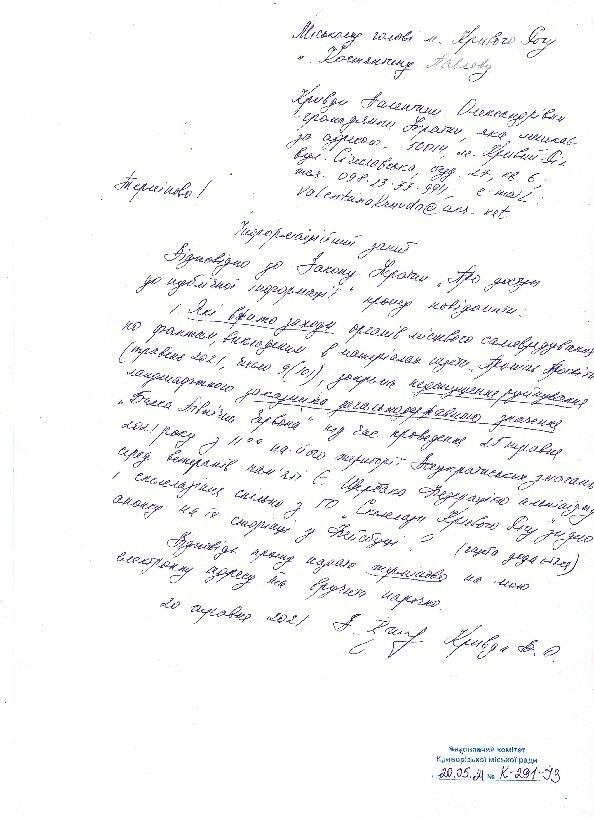 Міському голові м. Кривого Рогу
Костянтину Павлову
Кривди Валентини Олександрівни
громадянки України, яка мешкає
за адресою: 50014, м. Кривий Ріг
вул. Січеславська, буд. 27, кв 6,
тел. 098 13 77 991, e-mail:
Терміново!
Інформаційний запит
Відповідно до Закону України „Про доступ
до публічної інформації" прошу повідомити:
1. Які вжито заходи органів місцевого самоврядування
по фактам, викладеним в матеріалах газети
(травень 2021, число 9(101), зокрема недопущення руйнування
ландшафтного заказника загальнодержавного значення
„Балка Північна Червона" під час проведення 25 травня
2021 року з 11⁰⁰ на його території Всеукраїнських змагань
серед ветеранів пам'яті Є. Щербака Федерацією альпінізму
і скелелазіння спільно з ГО „Скеледром Кривого Рогу" згідно
анонсу на їх сторінці у Фейсбуці. (газета додається)
Відповідь прошу надати терміново на мою
електронну адресу та вручити нарочно.
20 травня 2021 Кривда В.О.
Виконавчий комітет
Криворізької міської ради
20.05.21 № К-291-ІЗ